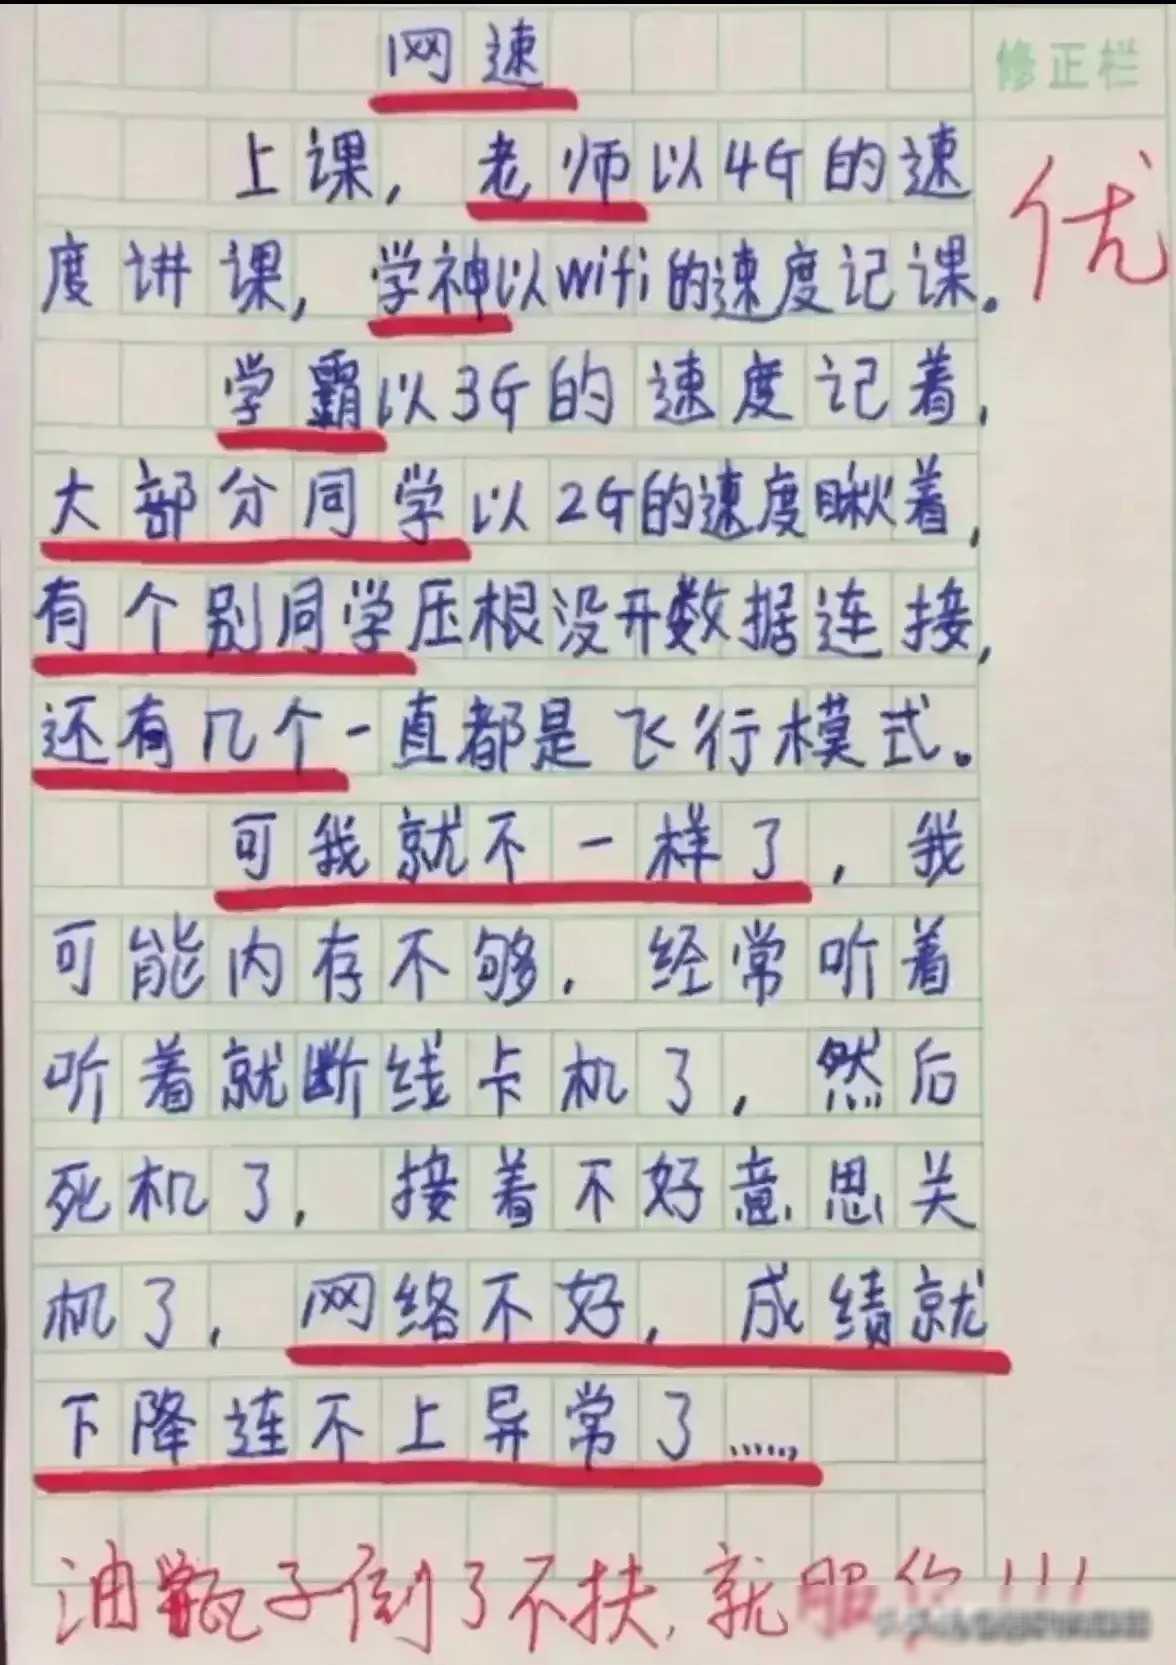 网速
修正栏
上课，老师以4G的速
优
度讲课，学神以wifi的速度记课。
学霸以3G的速度记着，
大部分同学以2G的速度瞅着，
有个别同学压根没开数据连接，
还有几个一直都是飞行模式。
可我就不一样了，我
可能内存不够．经常听着
听着就断线卡机了，然后
死机了，接着不好意思关
机了，网络不好，成绩就
下降连不上异常了……
油瓶子倒了不扶，就服你!!!